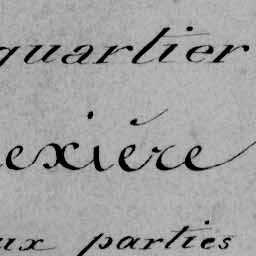 quartier
exière
ux parties